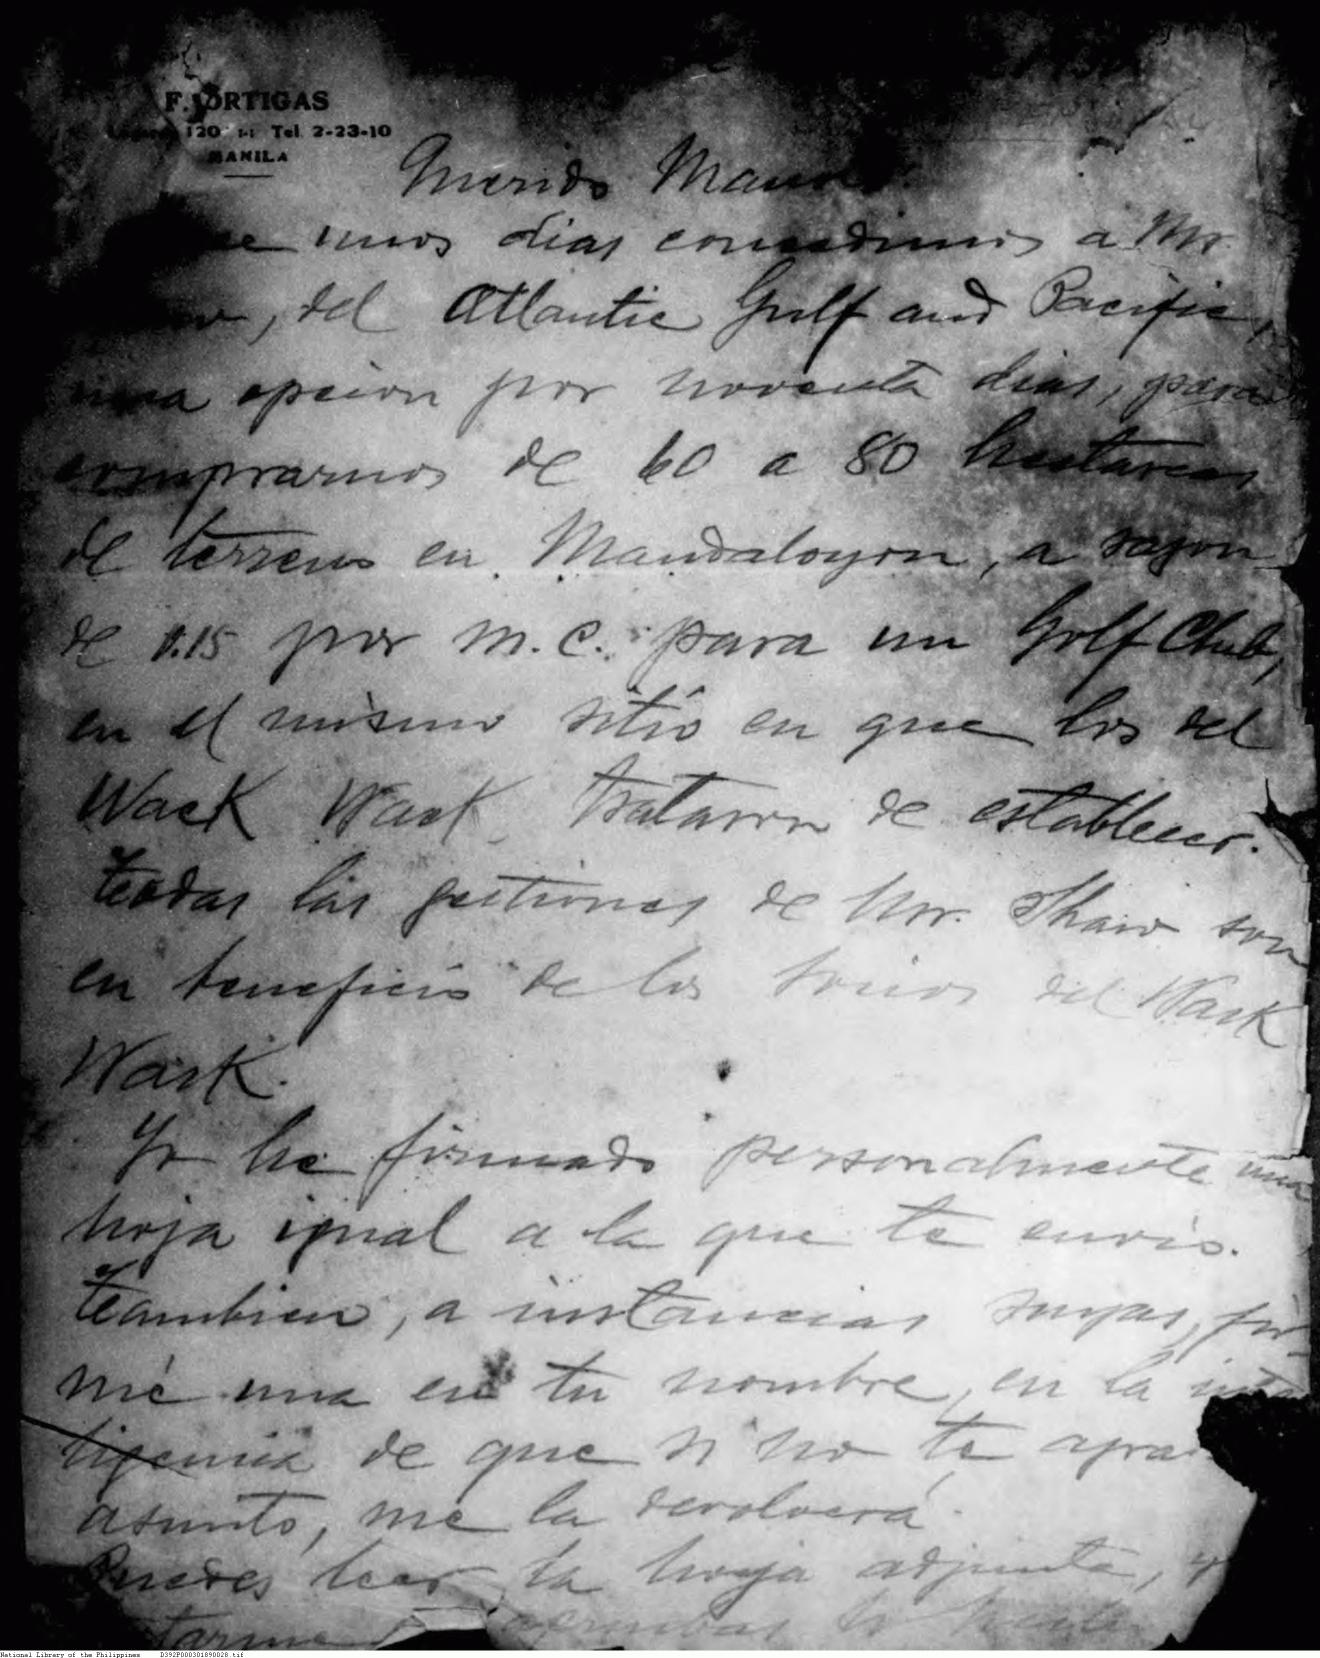 F. ORTIGAS
120 Tel. 2-23-10
MANILA
Querido
unos dias concedimos a Mr.
, del Atlantic Gulf and Pacific,
una opcion por noventa dias, para
comprarnos de 60 a 80 hectareas
de terreno en Mandaloyon, a razon
de 0.15 por m.c. para un Golf Club,
en el mismo sitio en que los del
Wack Wack trataron de establecer.
Todas las gestiones de Mr. Shaw son
en beneficio de los socios del Wack
Wack.
Yo he firmado personalmente una
hoja igual a la que te envio.
Tambien, a instancias suyas, fir-
mé una en tu nombre, en la inte
ligencia de que si no te
asunto, me la devolverá.
Puedes leer la hoja adjunta, y
apruebas lo hecho
National Library of the Philippines D392P000301890028.tif